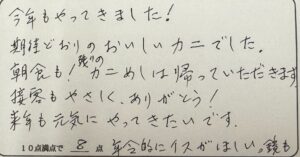 今年もやってきました!
期待どおりのおいしいカニでした。
朝食も!残りのカニめしは帰っていただきます
接客もやさしく、ありがとう!
来年も元気にやってきたいです。
10点満点で 8 点 年令的にイスがほしい。頭も